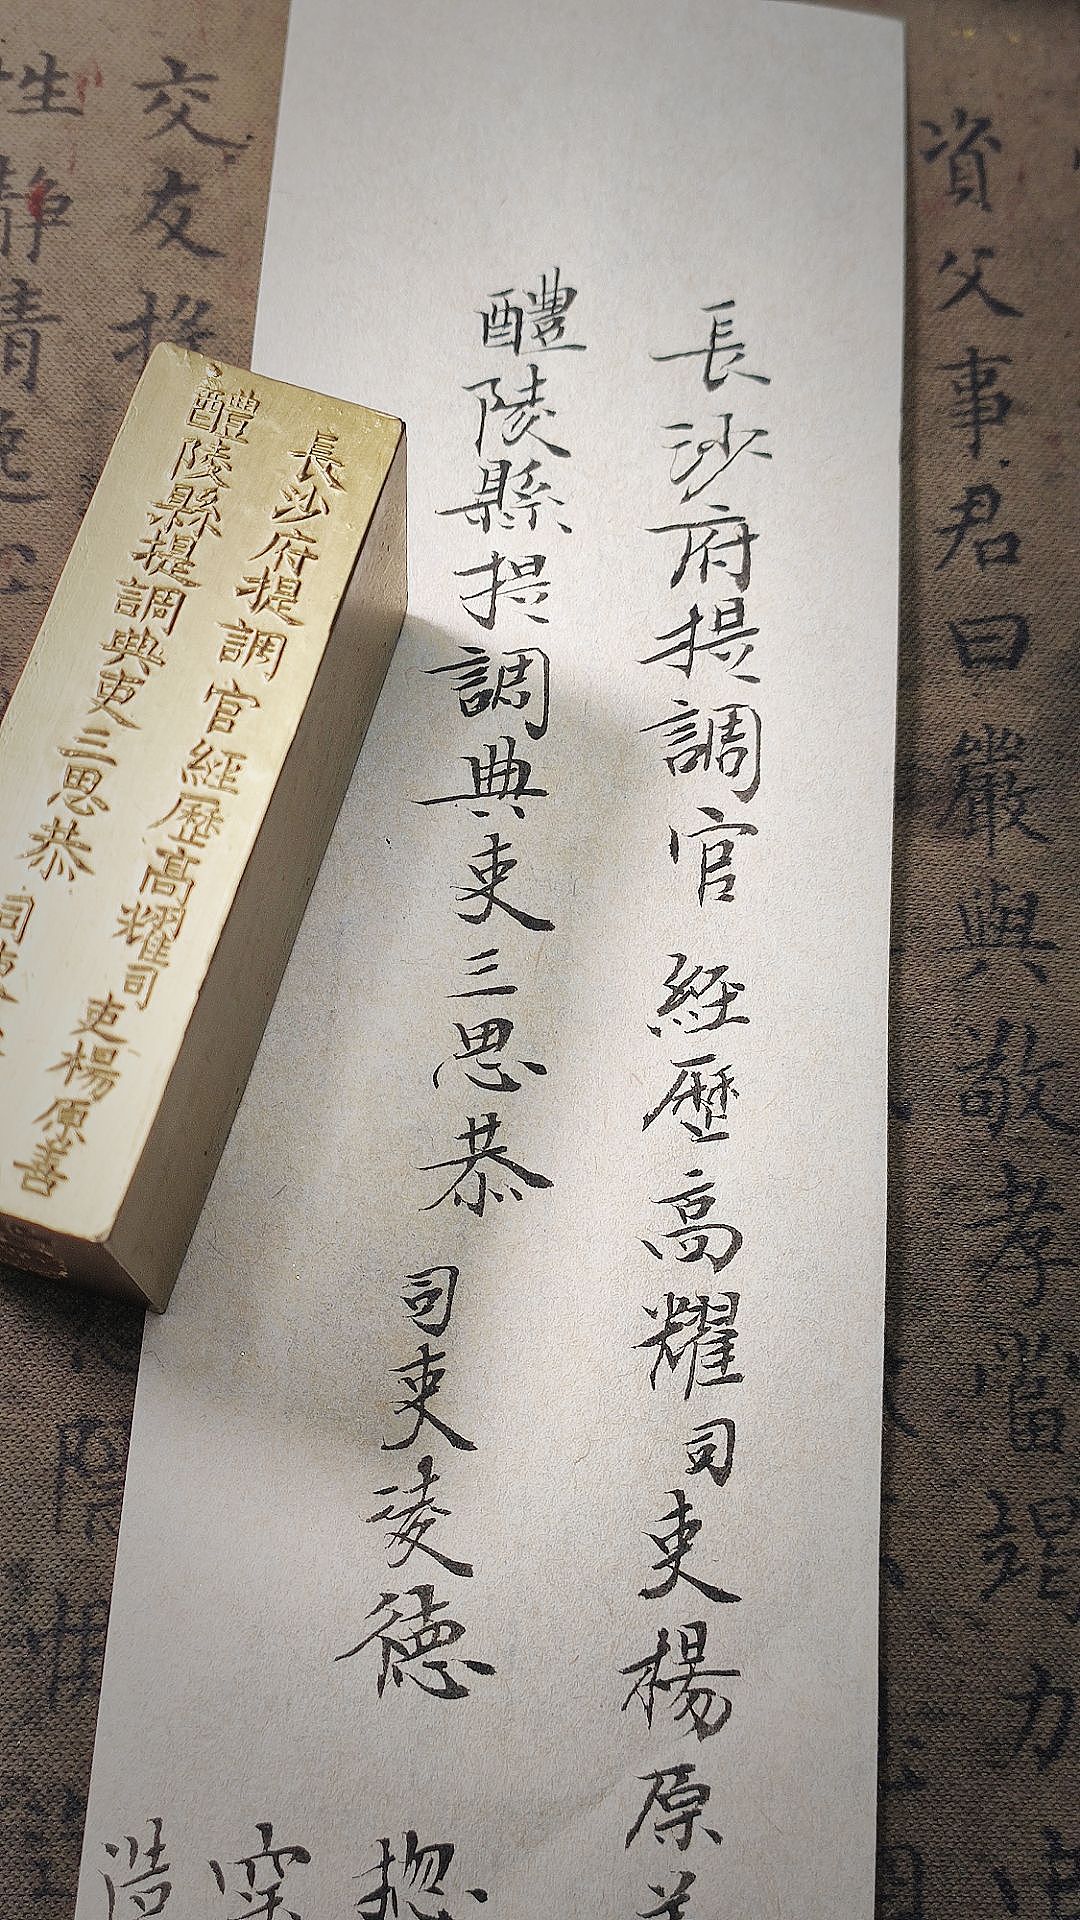 資父事君曰嚴與敬孝當竭力
長沙府提調官 經歷高耀司吏楊原善
醴陵縣提調典吏三思恭 司吏凌德
揔
深
浩
長沙府提調官經歷高耀司吏楊原善
醴陵縣提調典吏三思恭 司吏
交友投
性靜情逸